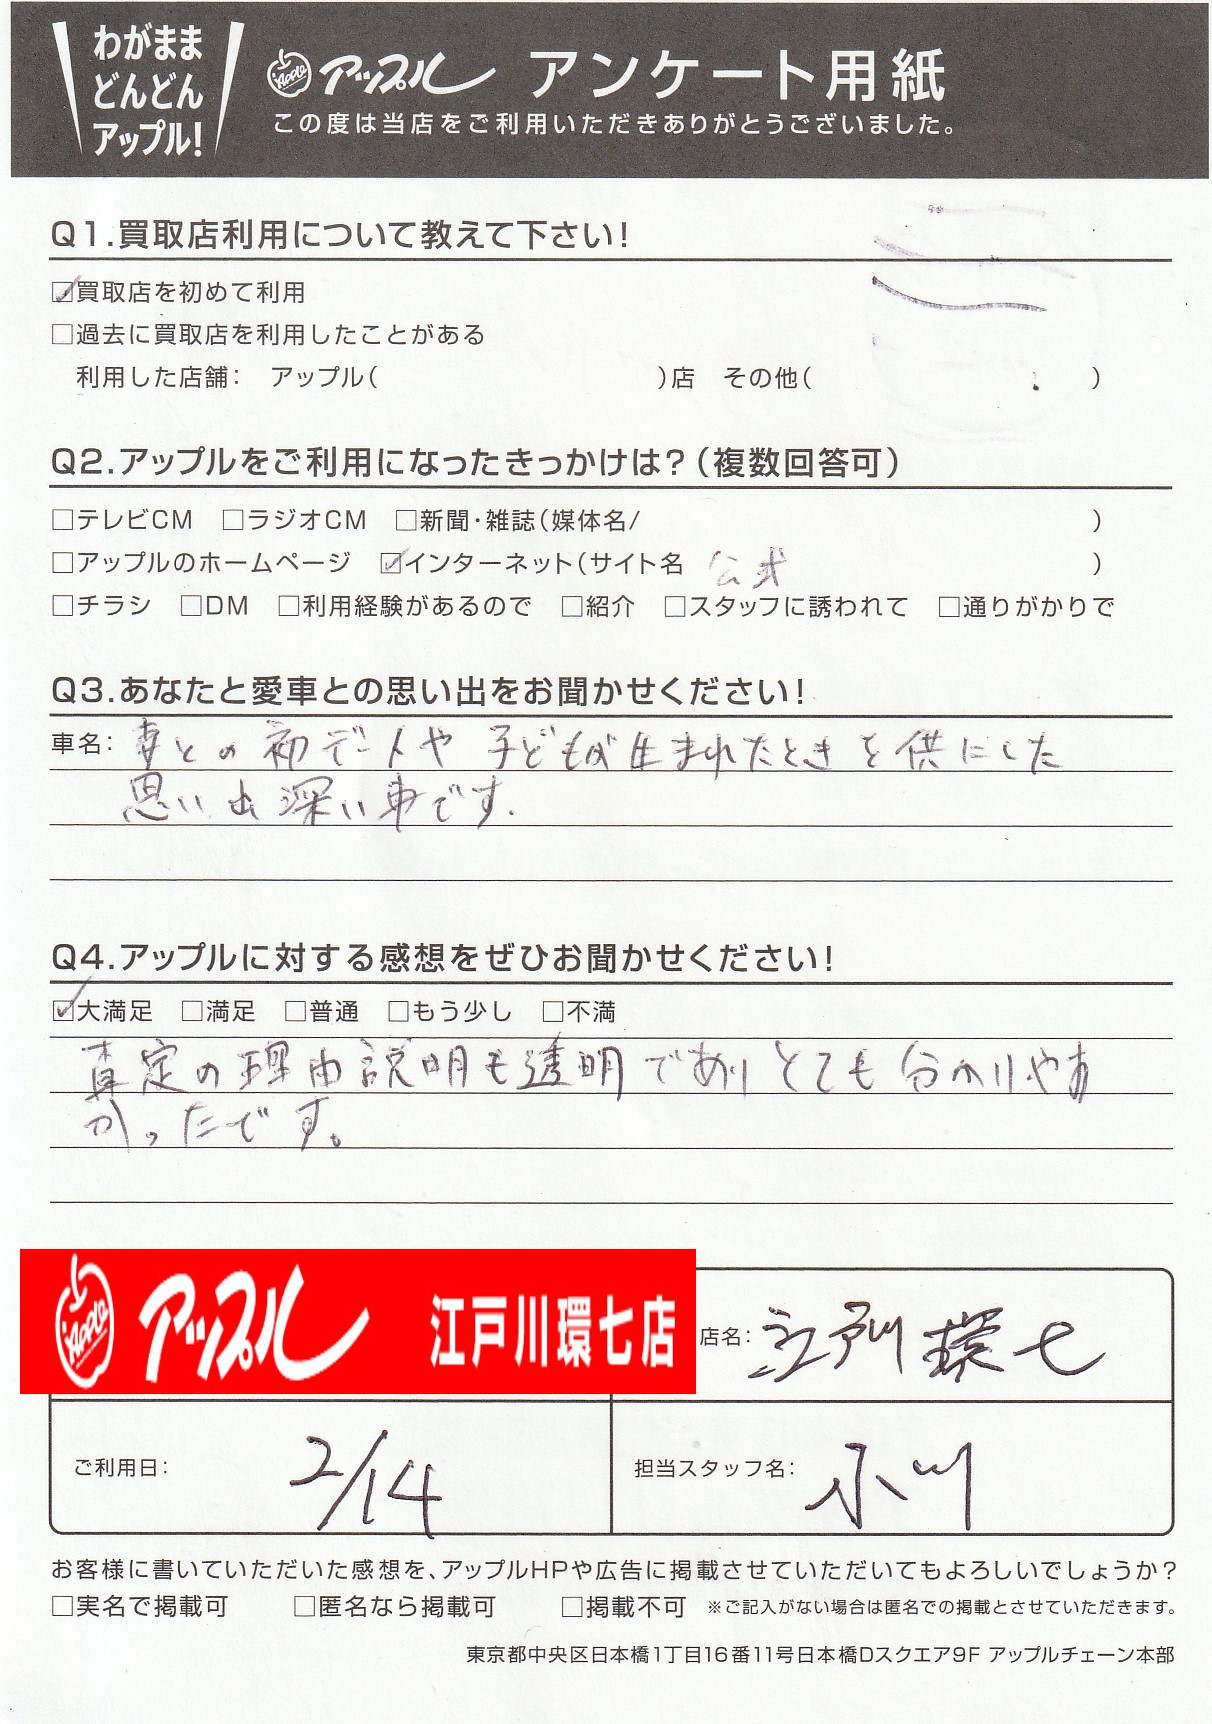 わがまま
どんどん
アップル!
Apple アップル アンケート用紙
この度は当店をご利用いただきありがとうございました。
Q1.買取店利用について教えて下さい!
☑買取店を初めて利用
□過去に買取店を利用したことがある
利用した店舗： アップル( )店 その他( )
Q2.アップルをご利用になったきっかけは?(複数回答可)
□テレビCM □ラジオCM □新聞・雑誌(媒体名/ )
□アップルのホームページ ☑インターネット(サイト名 公式 )
□チラシ □DM □利用経験があるので □紹介 □スタッフに誘われて □通りがかりで
Q3.あなたと愛車との思い出をお聞かせください!
車名： 妻との初デートや子どもが生まれたときを供にした
思い出深い車です.
Q4.アップルに対する感想をぜひお聞かせください!
☑大満足 □満足 □普通 □もう少し □不満
査定の理由説明も透明でありとても分かりやす
かったです。
Apple アップル 江戸川環七店
店名： 江戸川環七
ご利用日： 2/14
担当スタッフ名： 小川
お客様に書いていただいた感想を、アップルHPや広告に掲載させていただいてもよろしいでしょうか?
□実名で掲載可 □匿名なら掲載可 □掲載不可 ※ご記入がない場合は匿名での掲載とさせていただきます。
東京都中央区日本橋1丁目16番11号日本橋Dスクエア9F アップルチェーン本部